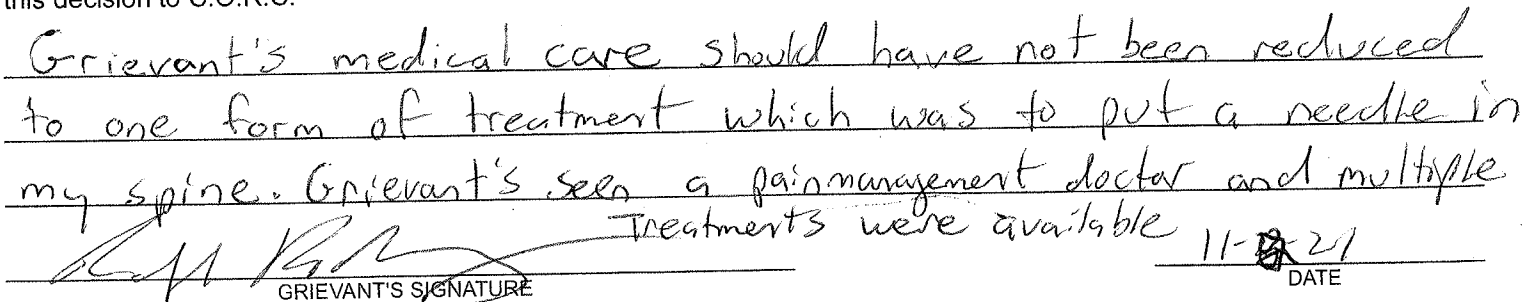 this decision to C.O.R.C.
Grievant's medical care should have not been reduced
to one form of treatment which was to put a needle in
my spine. Grievant's seen a painmanagement doctor and multiple
Treatments were available
11- -21
GRIEVANT'S SIGNATURE
DATE